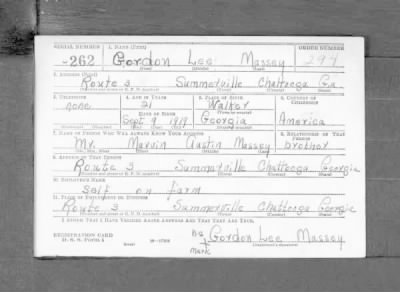 SERIAL NUMBER 1. NAME (PRINT) ORDER NUMBER
262 Gordon Lee Massey 294
(First) (Middle) (Last)
2. ADDRESS (PRINT)
Route 3 Summerville Chattooga Ga
3. TELEPHONE 4. AGE IN YEARS 5. PLACE OF BIRTH 6. COUNTRY OF CITIZENSHIP
none 21 Walker
DATE OF BIRTH
Sept 9 1919 Georgia America
7. NAME OF PERSON WHO WILL ALWAYS KNOW YOUR ADDRESS 8. RELATIONSHIP OF THAT PERSON
Mr. Marvin Austin Massey brother
9. ADDRESS OF THAT PERSON
Route 3 Summerville Chattooga Georgia
10. EMPLOYER'S NAME
self on farm
11. PLACE OF EMPLOYMENT OR BUSINESS
Route 3 Summerville Chattooga Georgia
I AFFIRM THAT I HAVE VERIFIED ABOVE ANSWERS AND THAT THEY ARE TRUE.
REGISTRATION CARD
D. S. S. Form 1
his
x Gordon Lee Massey
mark